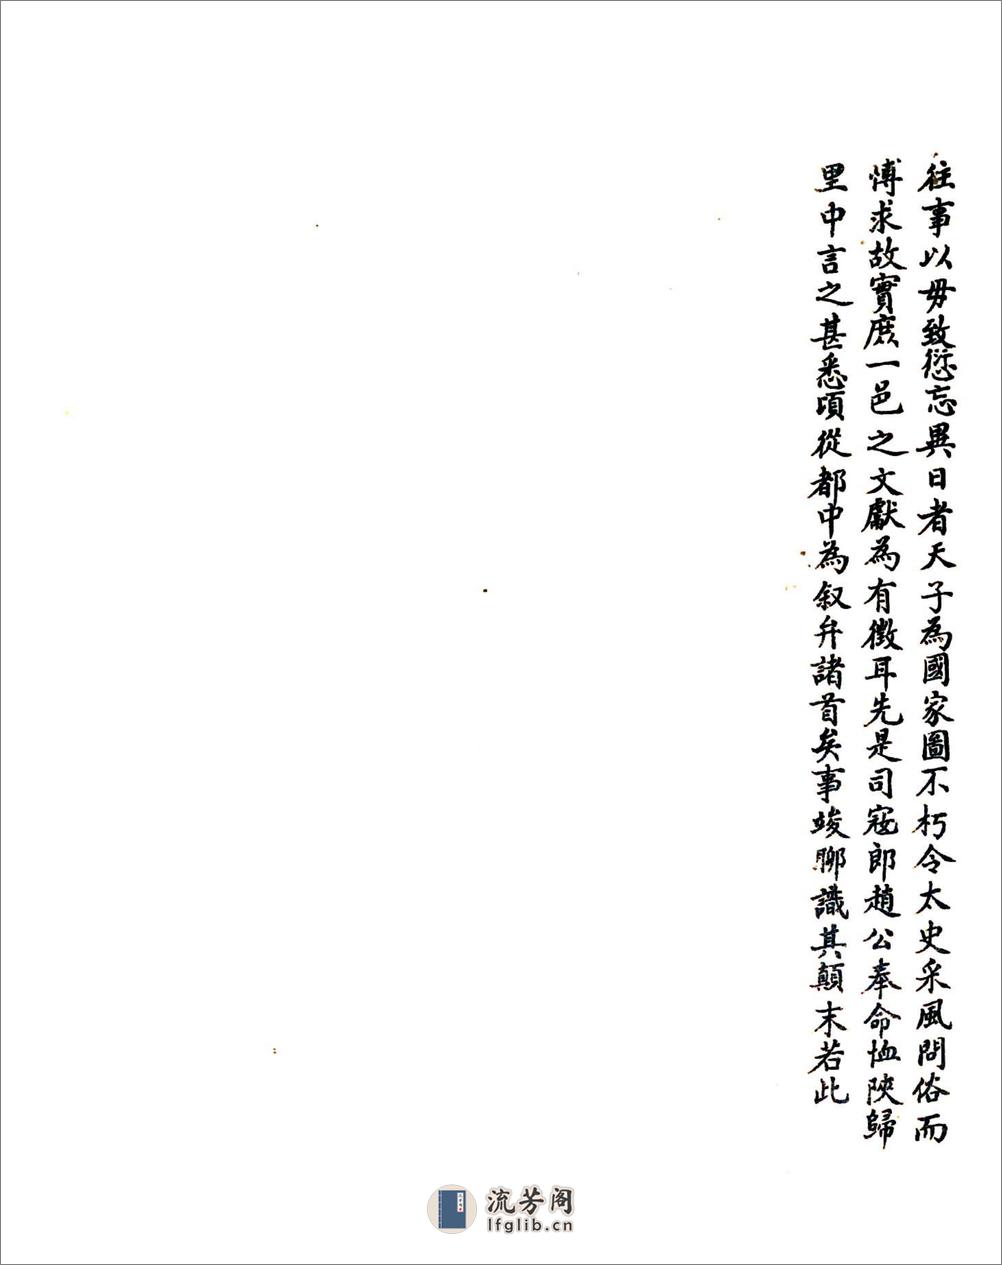 往事以毋致愆忘異日者天子為國家圖不朽令太史采風問俗而
愽求故實庶一邑之文獻為有徵耳先是司寇郎趙公奉命恤陝歸
里中言之甚悉頃從都中為叙弁諸首矣事竣聊識其顛末若此
流芳阁
lfglib.cn